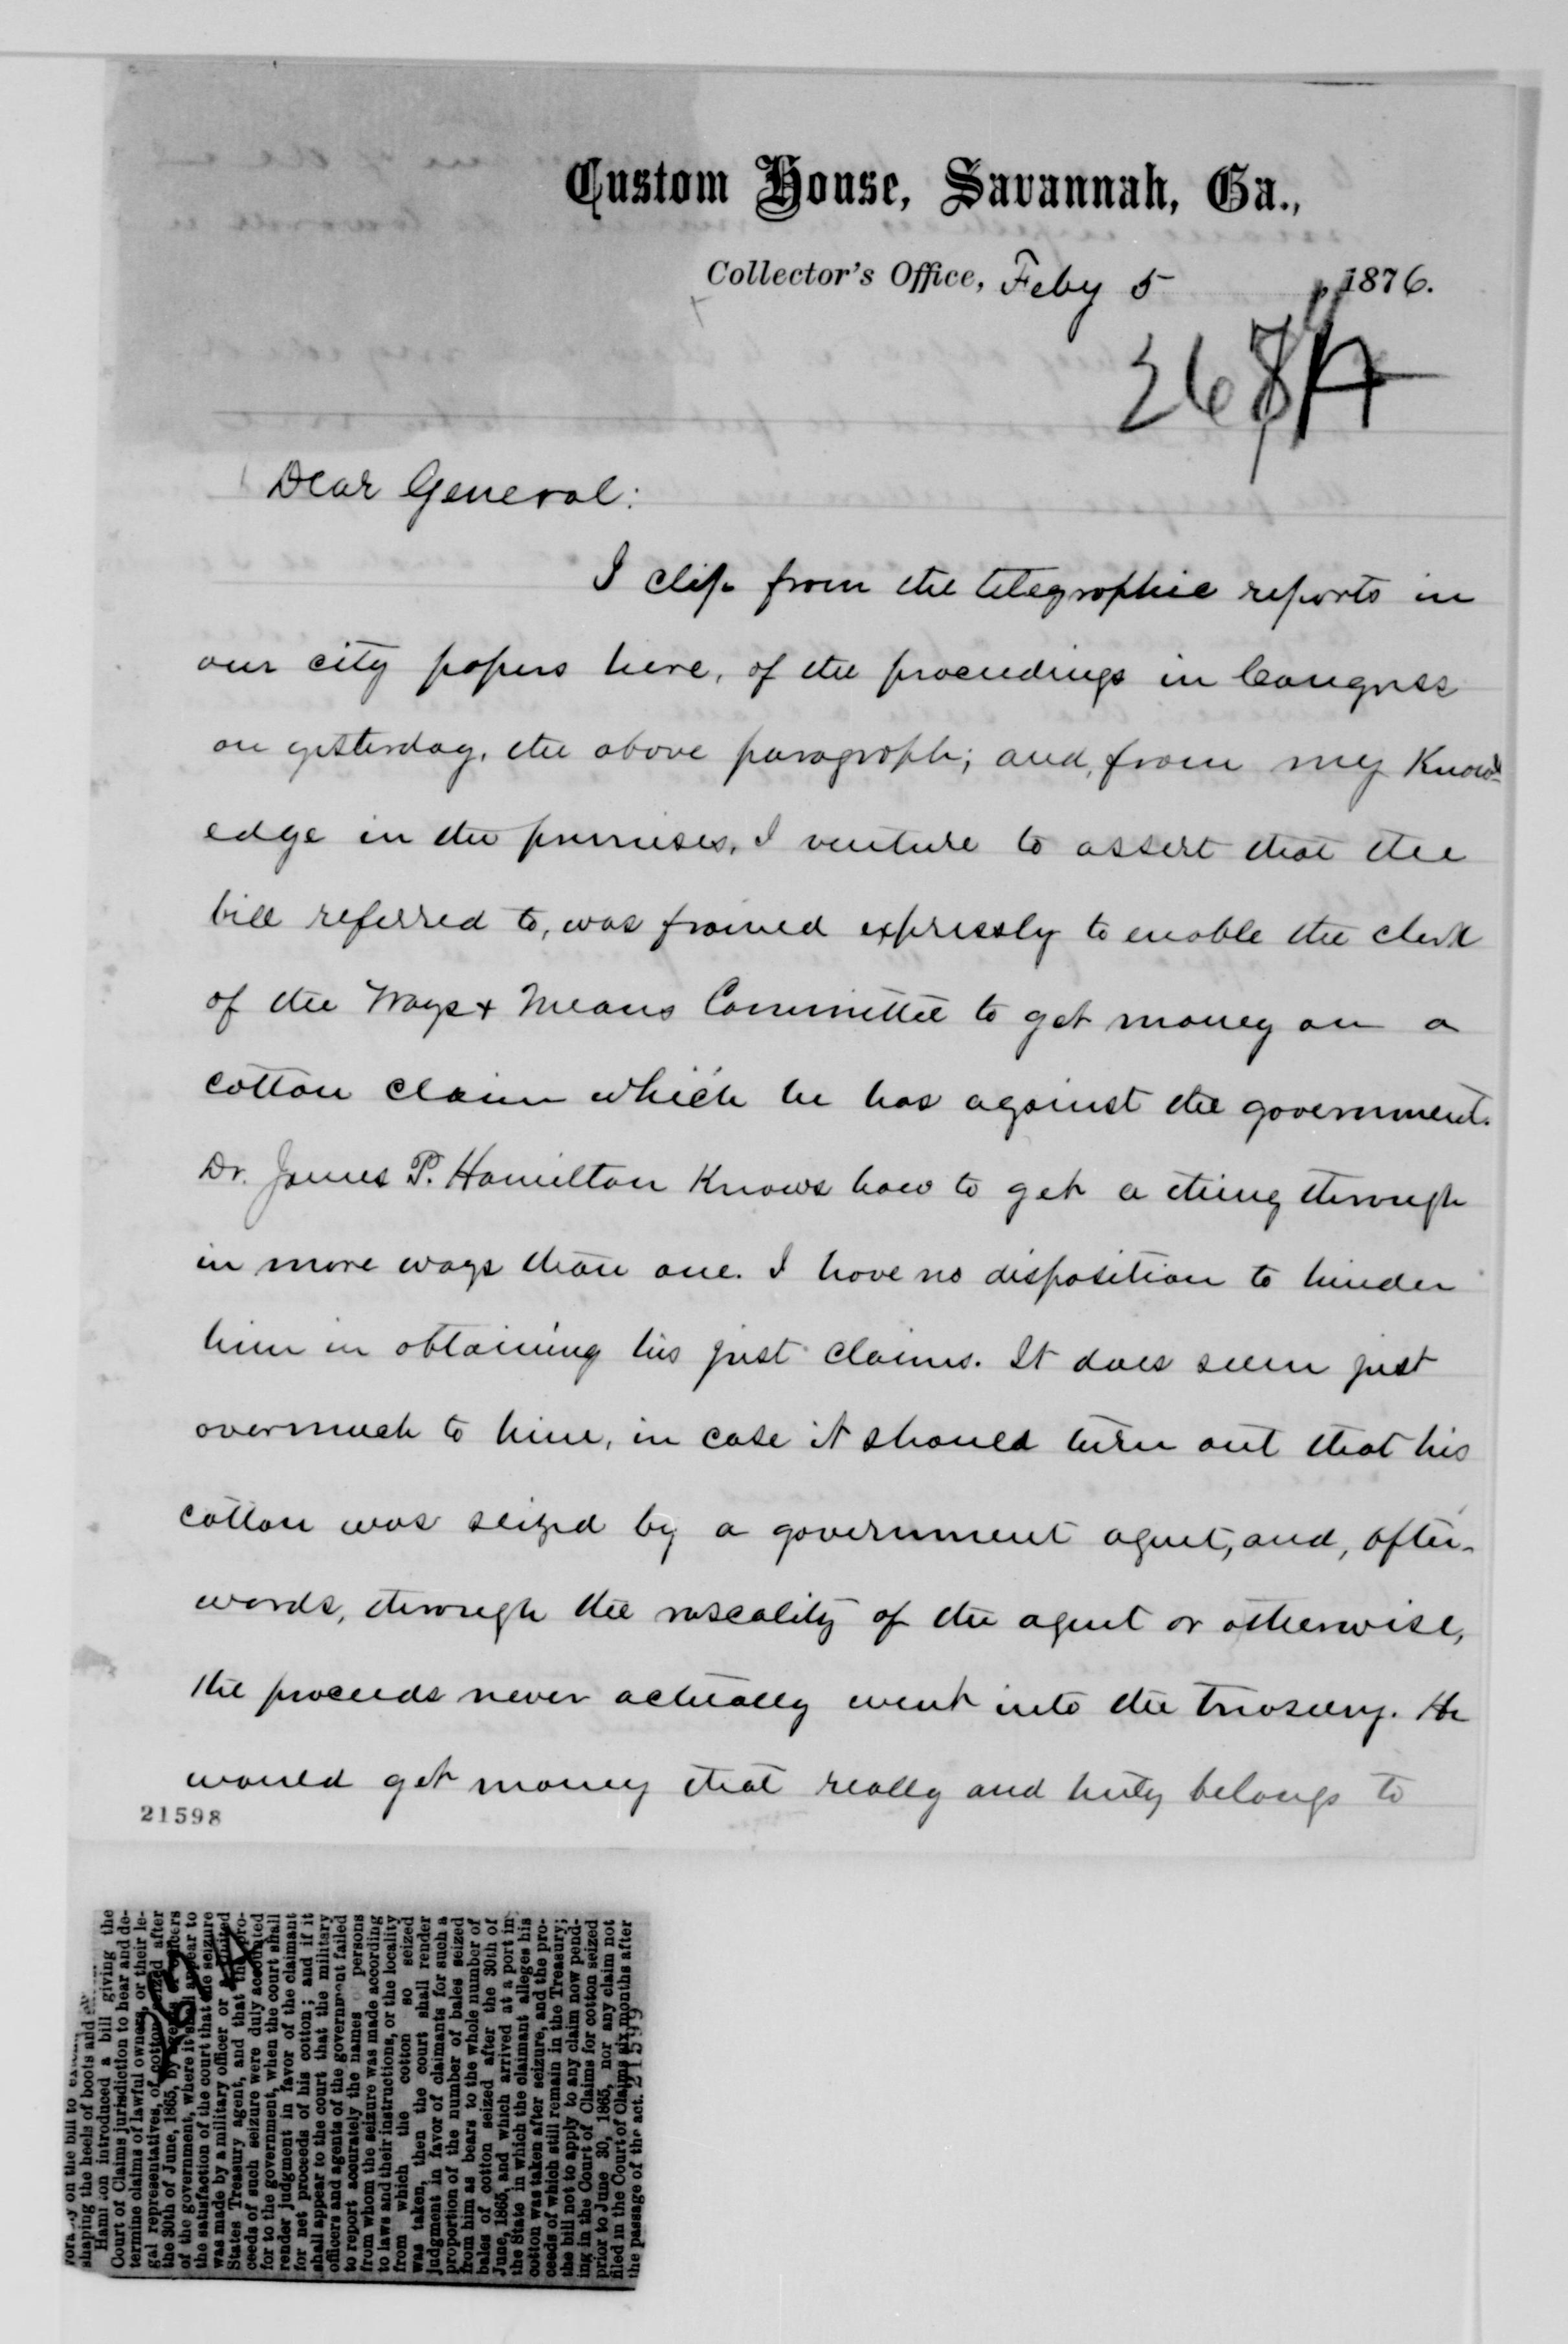 Custom House, Savannah, Ga.,
Collector's Office, Feby 5, 1876.
268
Dear General:
I clip from the telegraphic reports in
our city papers here, of the proceedings in Congress
on yesterday, the above paragraph; and, from my Knowl-
edge in the premises, I venture to assert that the
bill referred to, was framed expressly to enable the clerk
of the Ways & Means Committee to get money on a
cotton claim which he has against the government.
Dr. James P. Hamilton Knows how to get a thing through
in more ways than one. I have no disposition to hinder
him in obtaining his just claims. It does seem just
overmuch to him, in case it should turn out that his
cotton was seized by a government agent, and, after-
wards, through the rascality of the agent or otherwise,
the proceeds never actually went into the treasury. He
would get money that really and truly belongs to
21598
on the bill to
shaping the heels of boots and
introduced a bill giving the
Court of Claims jurisdiction to hear and de-
termine claims of lawful owners, or their le-
gal representatives, of cotton seized after
the 30th of June, 1865, by agents or officers
of the government, where it shall appear to
the satisfaction of the court that the seizure
was made by a military officer or a United
States Treasury agent, and that the pro-
ceeds of such seizure were duly accounted
for to the government, when the court shall
render judgment in favor of the claimant
for net proceeds of his cotton; and if it
shall appear to the court that the military
officers and agents of the government failed
to report accurately the names persons
from whom the seizure was made according
to laws and their instructions, or the locality
from which the cotton so seized
was taken, then the court shall render
judgment in favor of claimants for such a
proportion of the number of bales seized
from him as bears to the whole number of
bales of cotton seized after the 30th of
June, 1865, and which arrived at a port in
the State in which the claimant alleges his
cotton was taken after seizure, and the pro-
ceeds of which still remain in the Treasury;
the bill not to apply to any claim now pend-
ing in the Court of Claims for cotton seized
prior to June 30, 1865, nor any claim not
filed in the Court of Claims six months after
the passage of the act.
21599